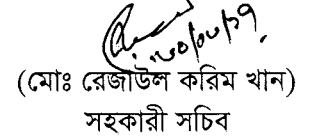 (মোঃ রেজাউল করিম খান)
সহকারী সচিব